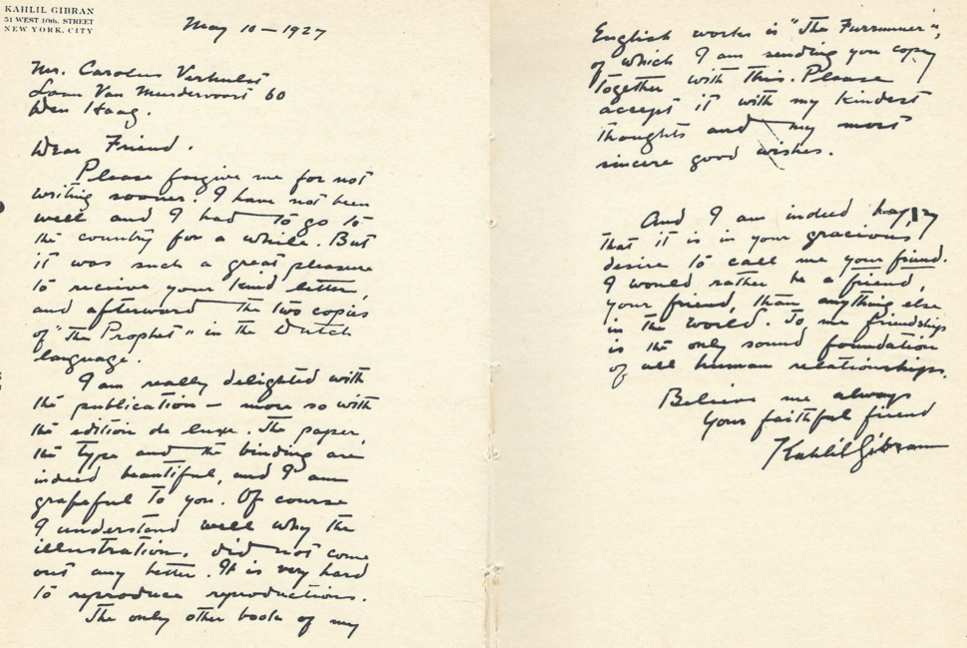 KAHLIL GIBRAN
51 WEST 10th. STREET
NEW YORK. CITY
May 10 – 1927
Mr. Carolus Verhulst
Laan Van Meerdervoort 60
Den Haag.
Dear Friend.
Please forgive me for not
writing sooner. I have not been
well and I had to go to
the country for a while. But
it was such a great pleasure
to receive your kind letter,
and afterward the two copies
of "The Prophet" in the Dutch
language.
I am really delighted with
the publication – more so with
the edition de luxe. The paper,
the type and the binding are
indeed beautiful, and I am
grateful to you. Of course
I understand well why the
illustrations did not come
out any better. It is very hard
to reproduce reproductions.
The only other book of my
English works is "The Forrunner",
of which I am sending you copy
together with this. Please
accept it with my kindest
thoughts and my most
sincere good wishes.
And I am indeed happy
that it is in your gracious
desire to call me your friend.
I would rather be a friend,
your friend, than anything else
in the world. To me friendship
is the only sound foundation
of all human relationships.
Believe me always
Your faithful friend
Kahlil Gibran